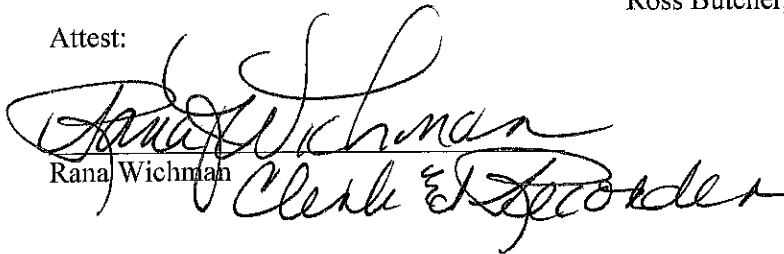 Ross Butcher,
Attest:
Rana J Wichman
Rana Wichman
Clerk & Recorder